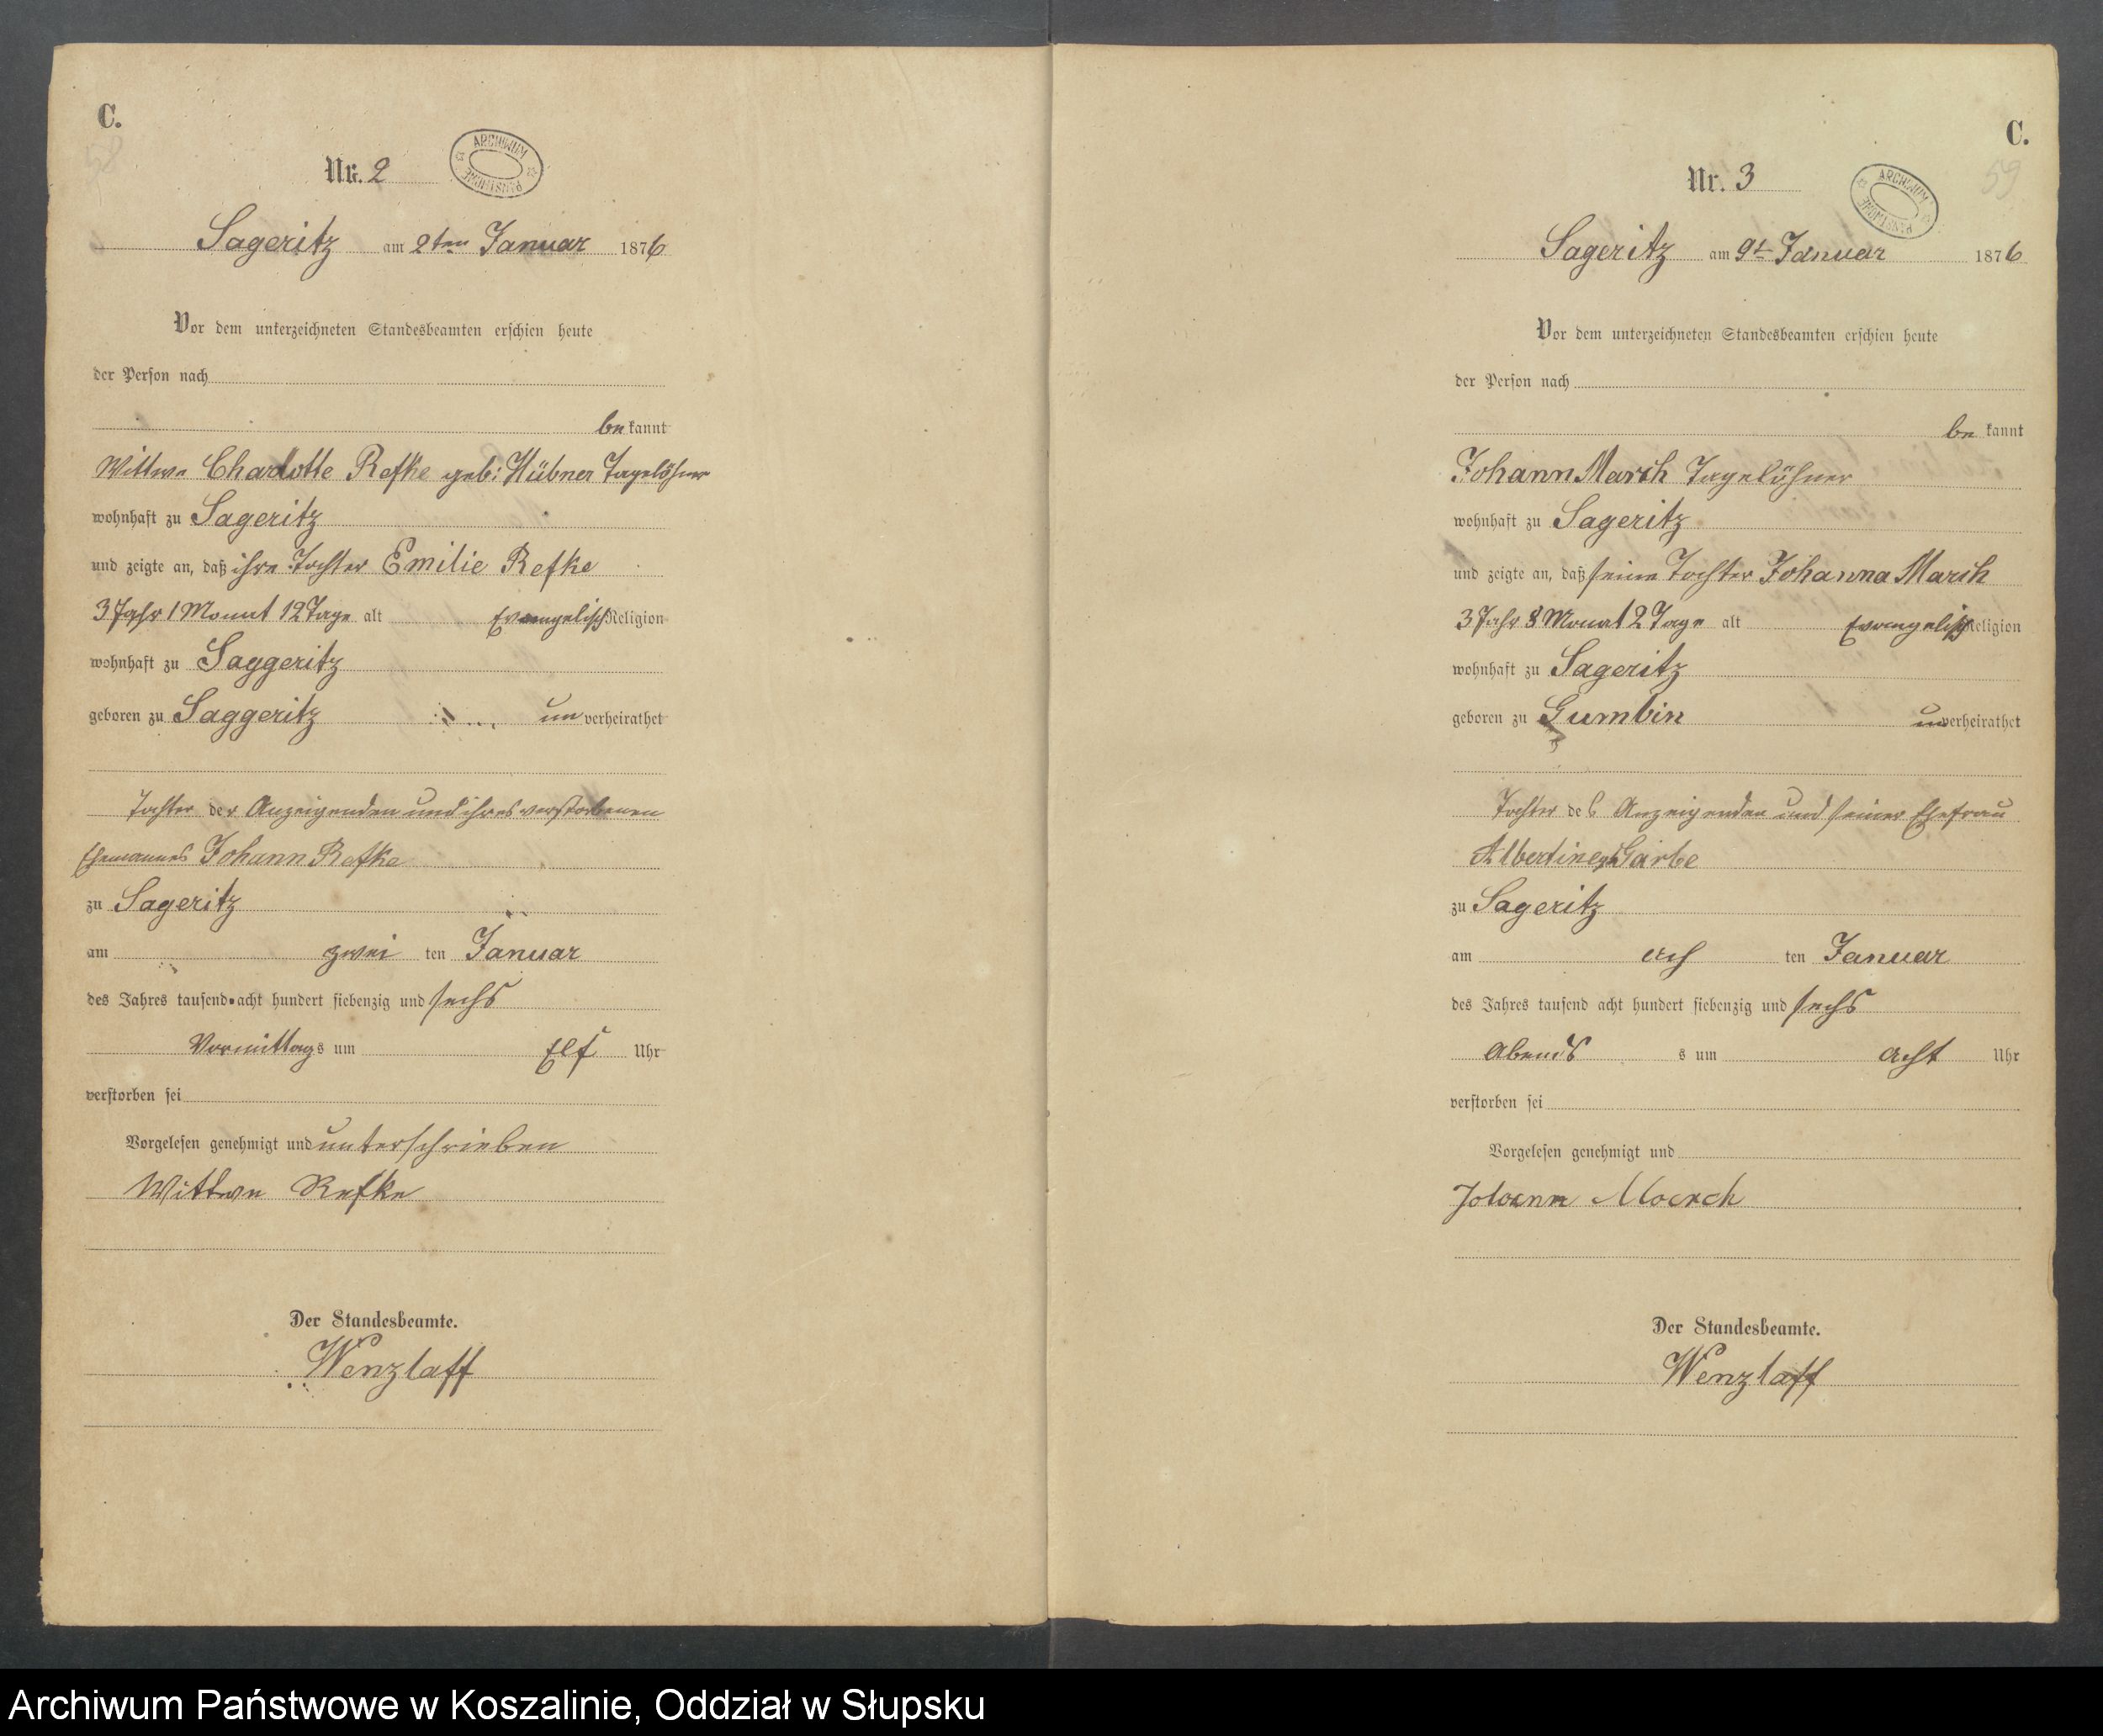 C.
58
Nr. 2
ARCHIWUM PAŃSTWOWE
Sageritz am 2ten Januar 1876
Vor dem unterzeichneten Standesbeamten erschien heute
der Person nach
be kannt
Wittwe Charlotte Refke geb: Hübner Tagelöhner
wohnhaft zu Sageritz
und zeigte an, daß ihre Tochter Emilie Refke
3 Jahr 1 Monat 12 Tage alt Evangelisch Religion
wohnhaft zu Saggeritz
geboren zu Saggeritz un verheirathet
Tochter der Anzeigenden und ihres verstorbenen
Ehemannes Johann Refke
zu Sageritz
am zwei ten Januar
des Jahres tausend acht hundert siebenzig und sechs
Vormittags um Elf Uhr
verstorben sei
Vorgelesen genehmigt und unterschrieben
Wittwe Refke
Der Standesbeamte.
Wenzlaff
C.
59
Nr. 3
ARCHIWUM PAŃSTWOWE
Sageritz am 9t Januar 1876
Vor dem unterzeichneten Standesbeamten erschien heute
der Person nach
be kannt
Johann March Tagelöhner
wohnhaft zu Sageritz
und zeigte an, daß seine Tochter Johanna March
3 Jahr 8 Monat 2 Tage alt Evangelisch Religion
wohnhaft zu Sageritz
geboren zu Gumbin unverheirathet
Tochter des Anzeigenden und seiner Ehefrau
Albertine Garbe
zu Sageritz
am ach ten Januar
des Jahres tausend acht hundert siebenzig und sechs
Abends s um acht Uhr
verstorben sei
Vorgelesen genehmigt und
Johann Moerch
Der Standesbeamte.
Wenzlaff
Archiwum Państwowe w Koszalinie, Oddział w Słupsku